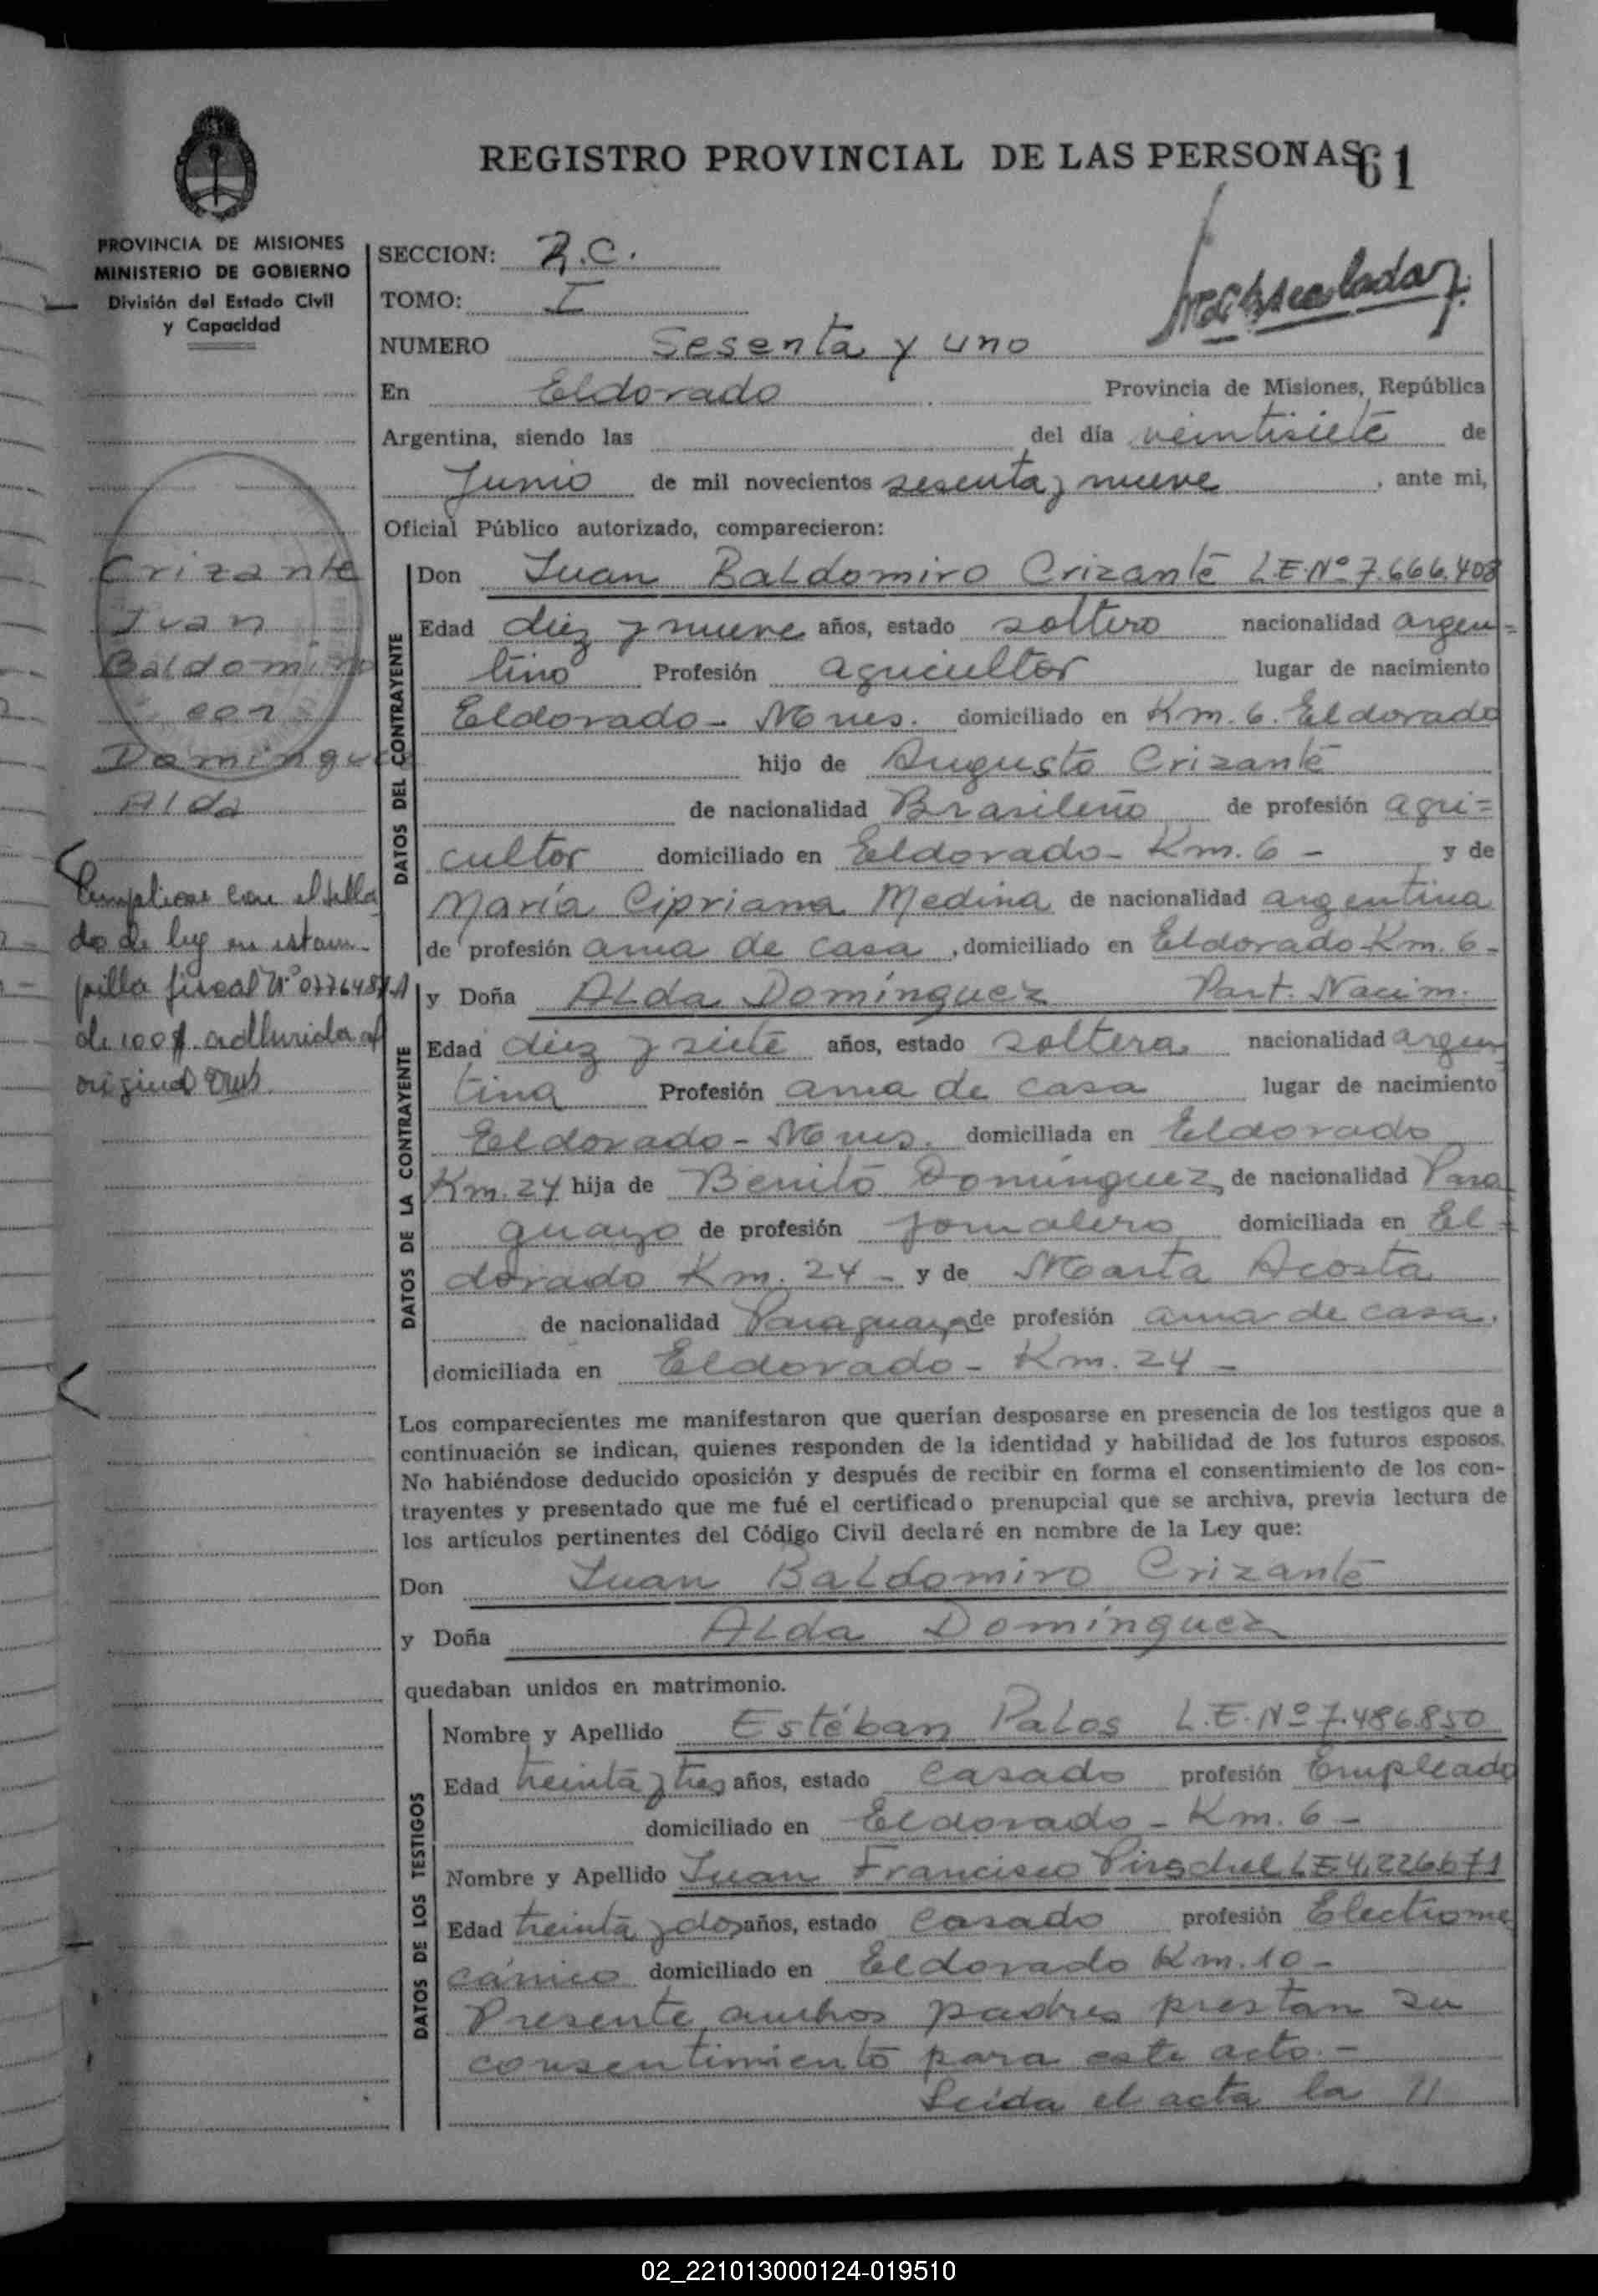 REGISTRO PROVINCIAL DE LAS PERSONAS 61
PROVINCIA DE MISIONES
MINISTERIO DE GOBIERNO
División del Estado Civil
y Capacidad
SECCION: R.C.
TOMO: I
NUMERO Sesenta y uno
En Eldorado Provincia de Misiones, República
Argentina, siendo las del día veintisiete de
Junio de mil novecientos sesenta y nueve, ante mi,
Oficial Público autorizado, comparecieron:
Crizante
Juan
Baldomiro
con
Dominguez
Alda
Cumplicose con el sella
do de ley en estam-
pilla fiscal Nº
de 100 $ adherida al
original
DATOS DEL CONTRAYENTE
Don Juan Baldomiro Crizante L.E.Nº 7.666.408
Edad diez y nueve años, estado soltero nacionalidad argen=
tino Profesión agricultor lugar de nacimiento
Eldorado - Mnes. domiciliado en Km. 6. Eldorado
hijo de Augusto Crizante
de nacionalidad Brasileño de profesión agri=
cultor domiciliado en Eldorado - Km. 6 - y de
María Cipriana Medina de nacionalidad argentina
de profesión ama de casa, domiciliado en Eldorado Km. 6 -
DATOS DE LA CONTRAYENTE
y Doña Alda Domínguez Part. Nacim.
Edad diez y siete años, estado soltera nacionalidad argen
tina Profesión ama de casa lugar de nacimiento
Eldorado - Mnes. domiciliada en Eldorado
Km. 24 hija de Benito Domínguez de nacionalidad Para
guayo de profesión jornalero domiciliada en El -
dorado Km. 24 - y de Marta Acosta
de nacionalidad Paraguaya de profesión ama de casa.
domiciliada en Eldorado - Km. 24 -
Los comparecientes me manifestaron que querían desposarse en presencia de los testigos que a
continuación se indican, quienes responden de la identidad y habilidad de los futuros esposos.
No habiéndose deducido oposición y después de recibir en forma el consentimiento de los con-
trayentes y presentado que me fué el certificado prenupcial que se archiva, previa lectura de
los artículos pertinentes del Código Civil declaré en nombre de la Ley que:
Don Juan Baldomiro Crizante
y Doña Alda Domínguez
quedaban unidos en matrimonio.
DATOS DE LOS TESTIGOS
Nombre y Apellido Estéban Palos L.E.Nº 7.486.850
Edad treinta y tres años, estado casado profesión Empleado
domiciliado en Eldorado - Km. 6 -
Nombre y Apellido Juan Francisco Pirschel L.E 4.226671
Edad treinta y dos años, estado casado profesión Electrome
cánico domiciliado en Eldorado Km. 10 -
Presente ambos padres prestan su
consentimiento para este acto. -
Leída el acta la //
02_221013000124-019510